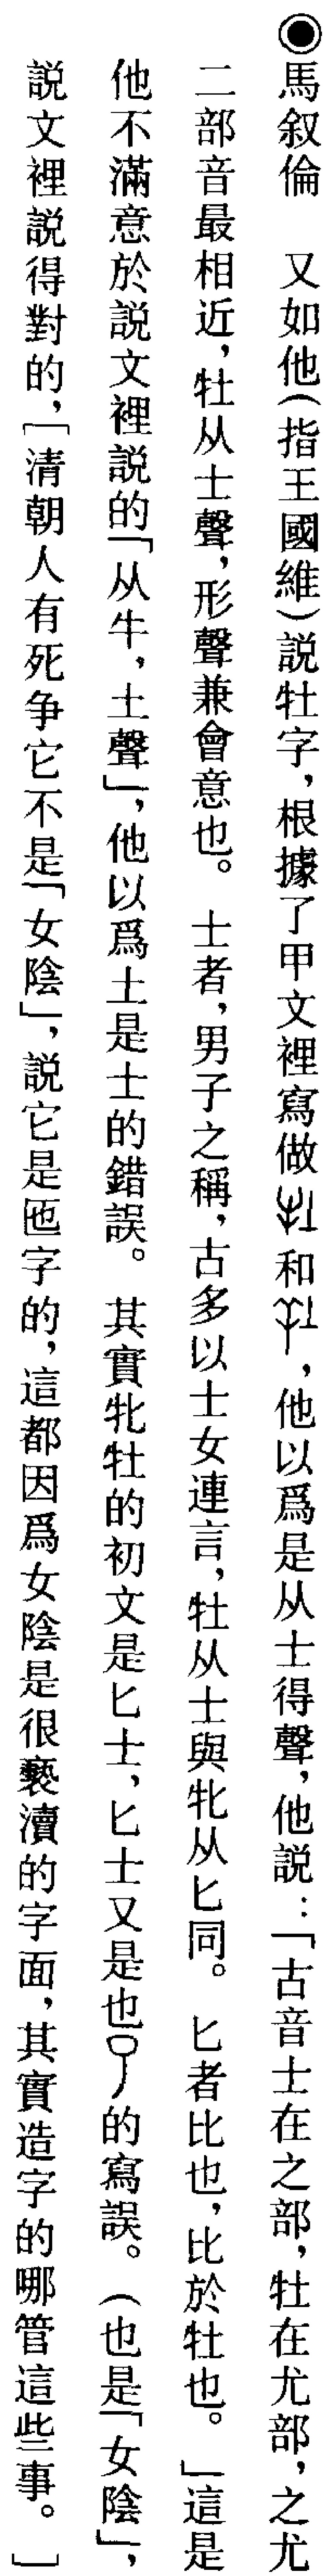 ◉馬叙倫　又如他(指王國維)說牡字，根據了甲文裡寫做和，他以爲是从士得聲，他說：「古音士在之部，牡在尤部，之尤
二部音最相近，牡从士聲，形聲兼會意也。士者，男子之稱，古多以士女連言，牡从士與牝从匕同。匕者比也，比於牡也。」這是
他不滿意於說文裡說的「从牛，土聲」，他以爲土是士的錯誤。其實牝牡的初文是匕士，匕士又是也的寫誤。(也是「女陰」，
說文裡說得對的，「清朝人有死争它不是「女陰」，說它是匜字的，這都因爲女陰是很褻瀆的字面，其實造字的哪管這些事。」